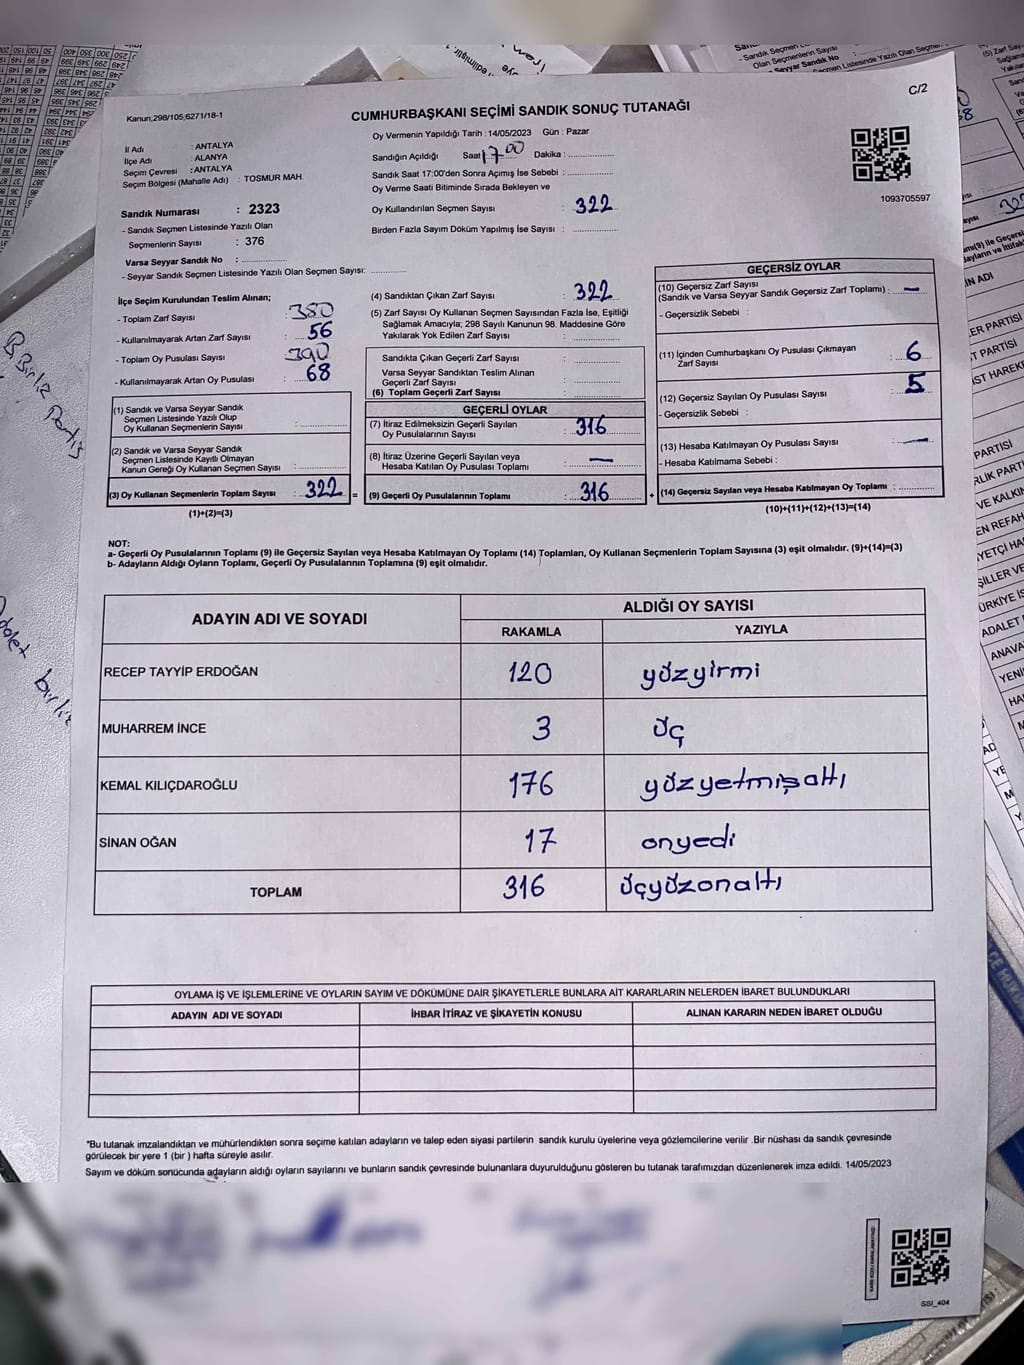 C/2
Kanun;298/105,6271/18-1
CUMHURBAŞKANI SEÇİMİ SANDIK SONUÇ TUTANAĞI
Oy Vermenin Yapıldığı Tarih : 14/05/2023 Gün : Pazar
İl Adı : ANTALYA
İlçe Adı : ALANYA
Seçim Çevresi : ANTALYA
Seçim Bölgesi (Mahalle Adı) : TOSMUR MAH.
Sandığın Açıldığı Saat 17 00 Dakika :
Sandık Saat 17:00'den Sonra Açımış İse Sebebi :
Oy Verme Saati Bitiminde Sırada Bekleyen ve
Oy Kullandırılan Seçmen Sayısı : 322
Birden Fazla Sayım Döküm Yapılmış İse Sayısı :
1093705597
Sandık Numarası : 2323
- Sandık Seçmen Listesinde Yazılı Olan
Seçmenlerin Sayısı : 376
Varsa Seyyar Sandık No :
- Seyyar Sandık Seçmen Listesinde Yazılı Olan Seçmen Sayısı:
İlçe Seçim Kurulundan Teslim Alınan;
- Toplam Zarf Sayısı : 380
- Kullanılmayarak Artan Zarf Sayısı : 56
- Toplam Oy Pusulası Sayısı : 390
- Kullanılmayarak Artan Oy Pusulası : 68
(1) Sandık ve Varsa Seyyar Sandık
Seçmen Listesinde Yazılı Olup
Oy Kullanan Seçmenlerin Sayısı :
(2) Sandık ve Varsa Seyyar Sandık
Seçmen Listesinde Kayıtlı Olmayan
Kanun Gereği Oy Kullanan Seçmen Sayısı :
(3) Oy Kullanan Seçmenlerin Toplam Sayısı : 322 =
(1)+(2)=(3)
(4) Sandıktan Çıkan Zarf Sayısı : 322
(5) Zarf Sayısı Oy Kullanan Seçmen Sayısından Fazla İse, Eşitliği
Sağlamak Amacıyla; 298 Sayılı Kanunun 98. Maddesine Göre
Yakılarak Yok Edilen Zarf Sayısı :
Sandıkta Çıkan Geçerli Zarf Sayısı :
Varsa Seyyar Sandıktan Teslim Alınan
Geçerli Zarf Sayısı :
(6) Toplam Geçerli Zarf Sayısı :
GEÇERLİ OYLAR
(7) İtiraz Edilmeksizin Geçerli Sayılan
Oy Pusulalarının Sayısı : 316
(8) İtiraz Üzerine Geçerli Sayılan veya
Hesaba Katılan Oy Pusulası Toplamı : —
(9) Geçerli Oy Pusulalarının Toplamı : 316 +
GEÇERSİZ OYLAR
(10) Geçersiz Zarf Sayısı
(Sandık ve Varsa Seyyar Sandık Geçersiz Zarf Toplamı) : —
- Geçersizlik Sebebi :
(11) İçinden Cumhurbaşkanı Oy Pusulası Çıkmayan
Zarf Sayısı : 6
(12) Geçersiz Sayılan Oy Pusulası Sayısı : 5
- Geçersizlik Sebebi :
(13) Hesaba Katılmayan Oy Pusulası Sayısı : —
- Hesaba Katılmama Sebebi :
(14) Geçersiz Sayılan veya Hesaba Katılmayan Oy Toplamı :
(10)+(11)+(12)+(13)=(14)
NOT:
a- Geçerli Oy Pusulalarının Toplamı (9) ile Geçersiz Sayılan veya Hesaba Katılmayan Oy Toplamı (14) Toplamları, Oy Kullanan Seçmenlerin Toplam Sayısına (3) eşit olmalıdır. (9)+(14)=(3)
b- Adayların Aldığı Oyların Toplamı, Geçerli Oy Pusulalarının Toplamına (9) eşit olmalıdır.
ADAYIN ADI VE SOYADI ALDIĞI OY SAYISI
RAKAMLA YAZIYLA
RECEP TAYYİP ERDOĞAN 120 yüzyirmi
MUHARREM İNCE 3 üç
KEMAL KILIÇDAROĞLU 176 yüzyetmişaltı
SİNAN OĞAN 17 onyedi
TOPLAM 316 üçyüzonaltı
OYLAMA İŞ VE İŞLEMLERİNE VE OYLARIN SAYIM VE DÖKÜMÜNE DAİR ŞİKAYETLERLE BUNLARA AİT KARARLARIN NELERDEN İBARET BULUNDUKLARI
ADAYIN ADI VE SOYADI İHBAR İTİRAZ VE ŞİKAYETİN KONUSU ALINAN KARARIN NEDEN İBARET OLDUĞU
*Bu tutanak imzalandıktan ve mühürlendikten sonra seçime katılan adayların ve talep eden siyasi partilerin sandık kurulu üyelerine veya gözlemcilerine verilir .Bir nüshası da sandık çevresinde
görülecek bir yere 1 (bir ) hafta süreyle asılır.
Sayım ve döküm sonucunda adayların aldığı oyların sayılarını ve bunların sandık çevresinde bulunanlara duyurulduğunu gösteren bu tutanak tarafımızdan düzenlenerek imza edildi. 14/05/2023
SSI_404